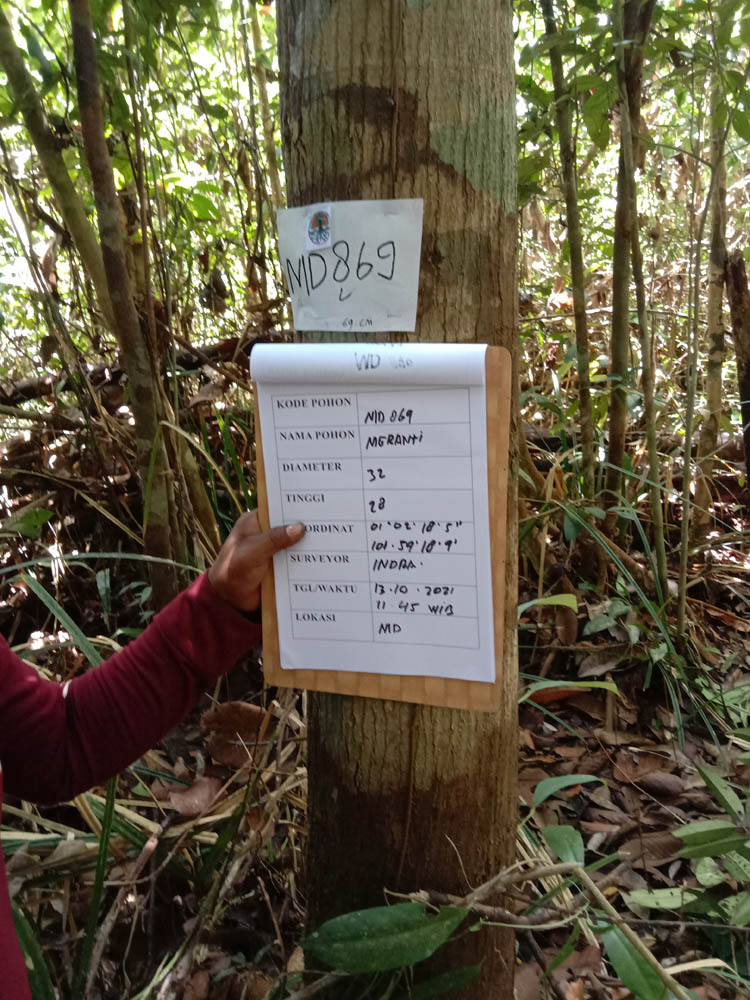 MD869
69 CM
KODE POHON MD 869
NAMA POHON MERANTI
DIAMETER 32
TINGGI 28
ORDINAT 01°02'18.5"
101.59'18.9'
SURVEYOR INDRA.
TGL/WAKTU 13.10.2021
11.45 WIB
LOKASI MD